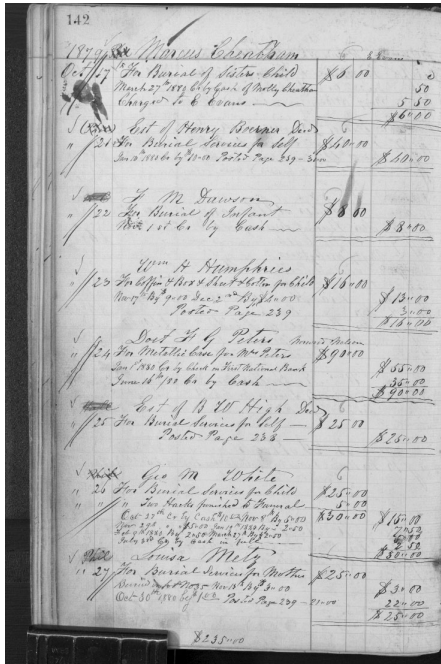 142
1879 Marcus Cheatham
Oct 17 For Burial of Sisters Child $6 00
March 27th 1880 Cr by Cash of Molly Cheatham 50
Charged to C Evans 5 50
$6"00
Est of Henry Boerner Decd
" 21 For Burial Services for Self $40"00
Posted Page 239 $40"00
F M Dawson
" 22 For Burial of Infant $8 00
1st Cr By Cash $8"00
Wm H Humphries
" 23 For Coffin & Box & Sheet & Cotton for Child $16"00
Nov 17th By $9"00 Dec 2nd By $4"00 $13"00
Posted Page 239 3"00
$16"00
Doct F G Peters
" 24 For Metallic Case for Mrs Peters $90"00
Jan 1st 1880 Cr by Check on First National Bank $55"00
June 16th 1880 Cr by Cash 35"00
$90"00
Est of B W High Decd
" 25 For Burial Services for Self $25 00
Posted Page 238 $25"00
Geo M White
" 26 For Burial Services for Child $25"00
" " " Two Hacks furnished to Funeral 5"00
Oct 27th Cr by Cash Nov 8th By 5"00 $30"00 $15"00
7"50
2 50
July 3rd By Cash $30"00
White Louisa Metz
" 27 For Burial Services for Mother $25"00
Nov 13th By $3"00 $3"00
Oct 30th 1880 by 1"00 Posted Page 239 - 21"00 22"00
$25"00
$235"00